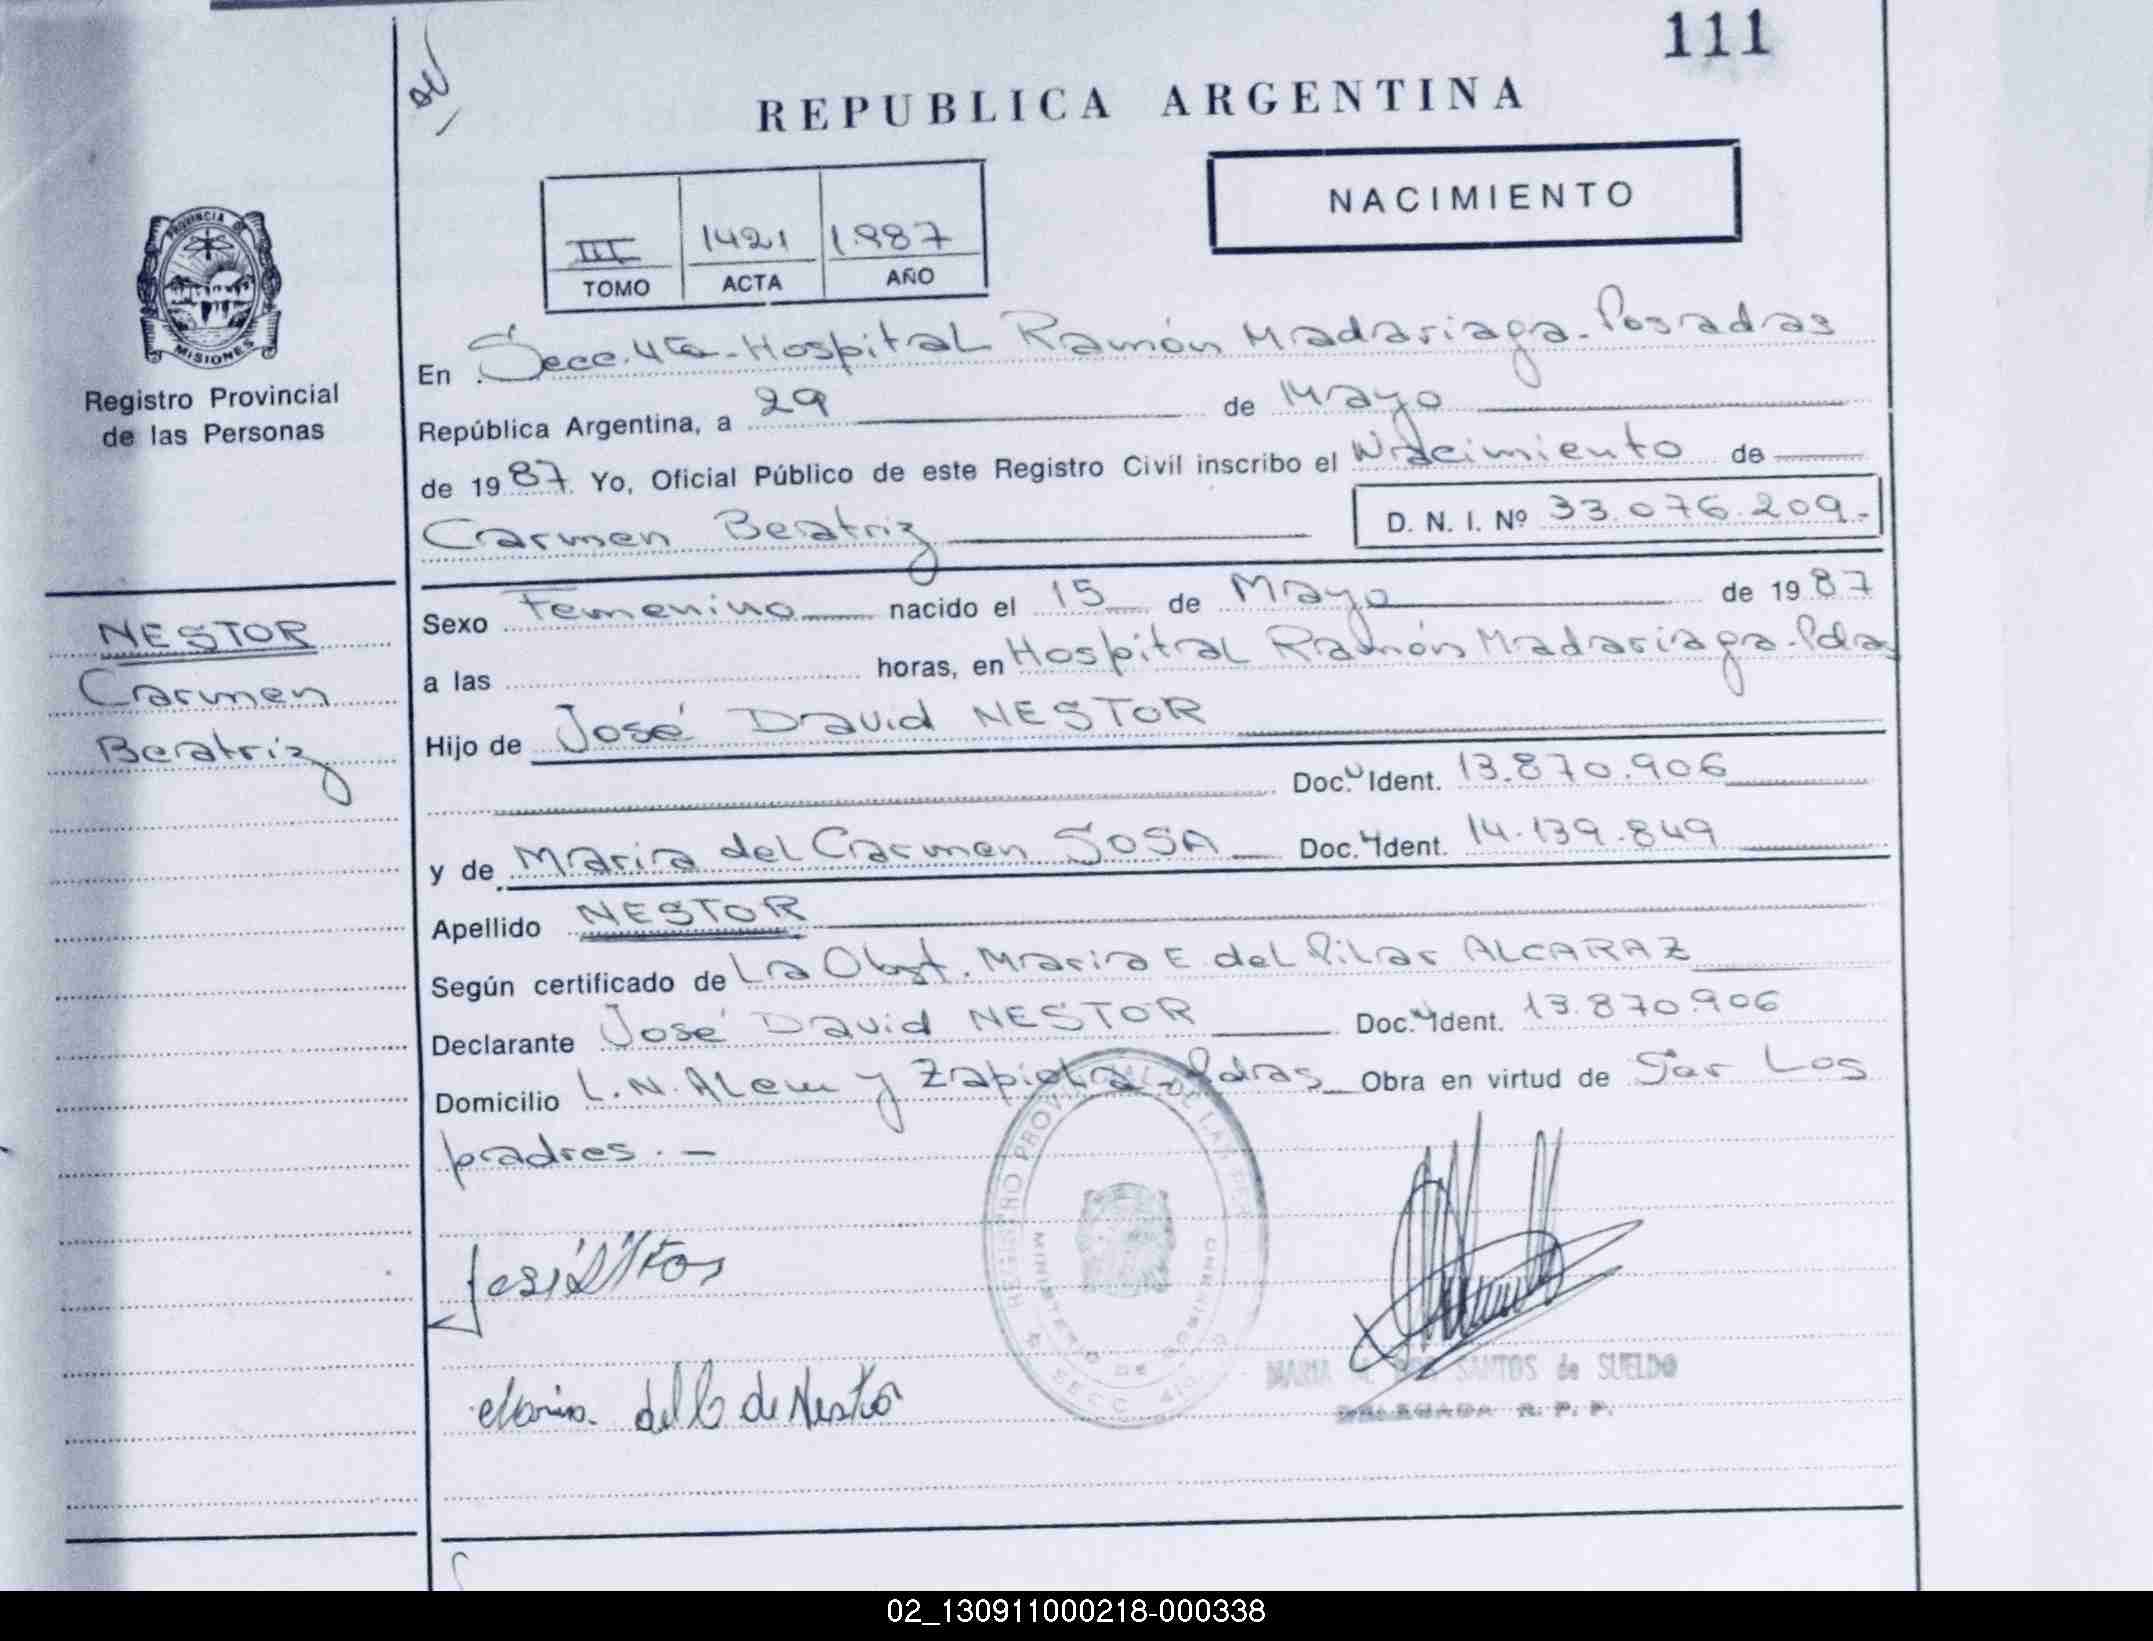 111
REPUBLICA ARGENTINA
NACIMIENTO
III 1421 1.987
TOMO ACTA AÑO
PROVINCIA DE
MISIONES
Registro Provincial
de las Personas
En Secc. 4ta - Hospital Ramón Madariaga - Posadas
República Argentina, a 29 de Mayo
de 1987. Yo, Oficial Público de este Registro Civil inscribo el Nacimiento de
Carmen Beatriz D. N. I. Nº 33.076.209.-
NESTOR
Carmen
Beatriz
Sexo Femenino nacido el 15 de Mayo de 1987
a las horas, en Hospital Ramón Madariaga - Pdas
Hijo de José David NESTOR
Doc. Ident. 13.870.906
y de Maria del Carmen SOSA Doc. Ident. 14.139.849
Apellido NESTOR
Según certificado de La Obst. Maria E. del Pilar ALCARAZ
Declarante José David NESTOR Doc. Ident. 13.870.906
Domicilio L. N. Alem y Zapiola - Pdas Obra en virtud de Sar Los
padres. -
REGISTRO PROVINCIAL DE LAS PER
MINISTERIO DE GOBIERNO
SECC. 4
Maria del C de Nestor
MARIA SANTOS de SUELDO
DELEGADA R. P. P.
02_130911000218-000338